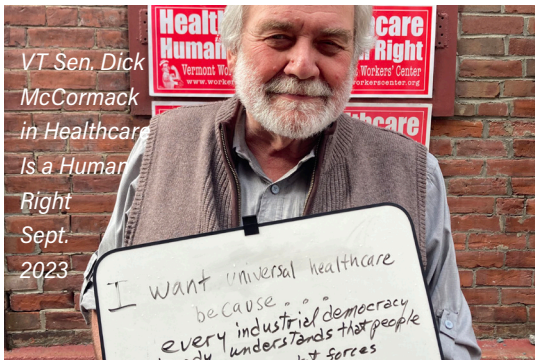 VT Sen. Dick
McCormack
in Healthcare
Is a Human
Right
Sept.
2023
Health
care
Human
Right
Vermont Wor
Workers' Center
www.workers
erscenter.org
Health
hcare
I want universal healthcare
because...
every industrial democracy
understands that people
forces